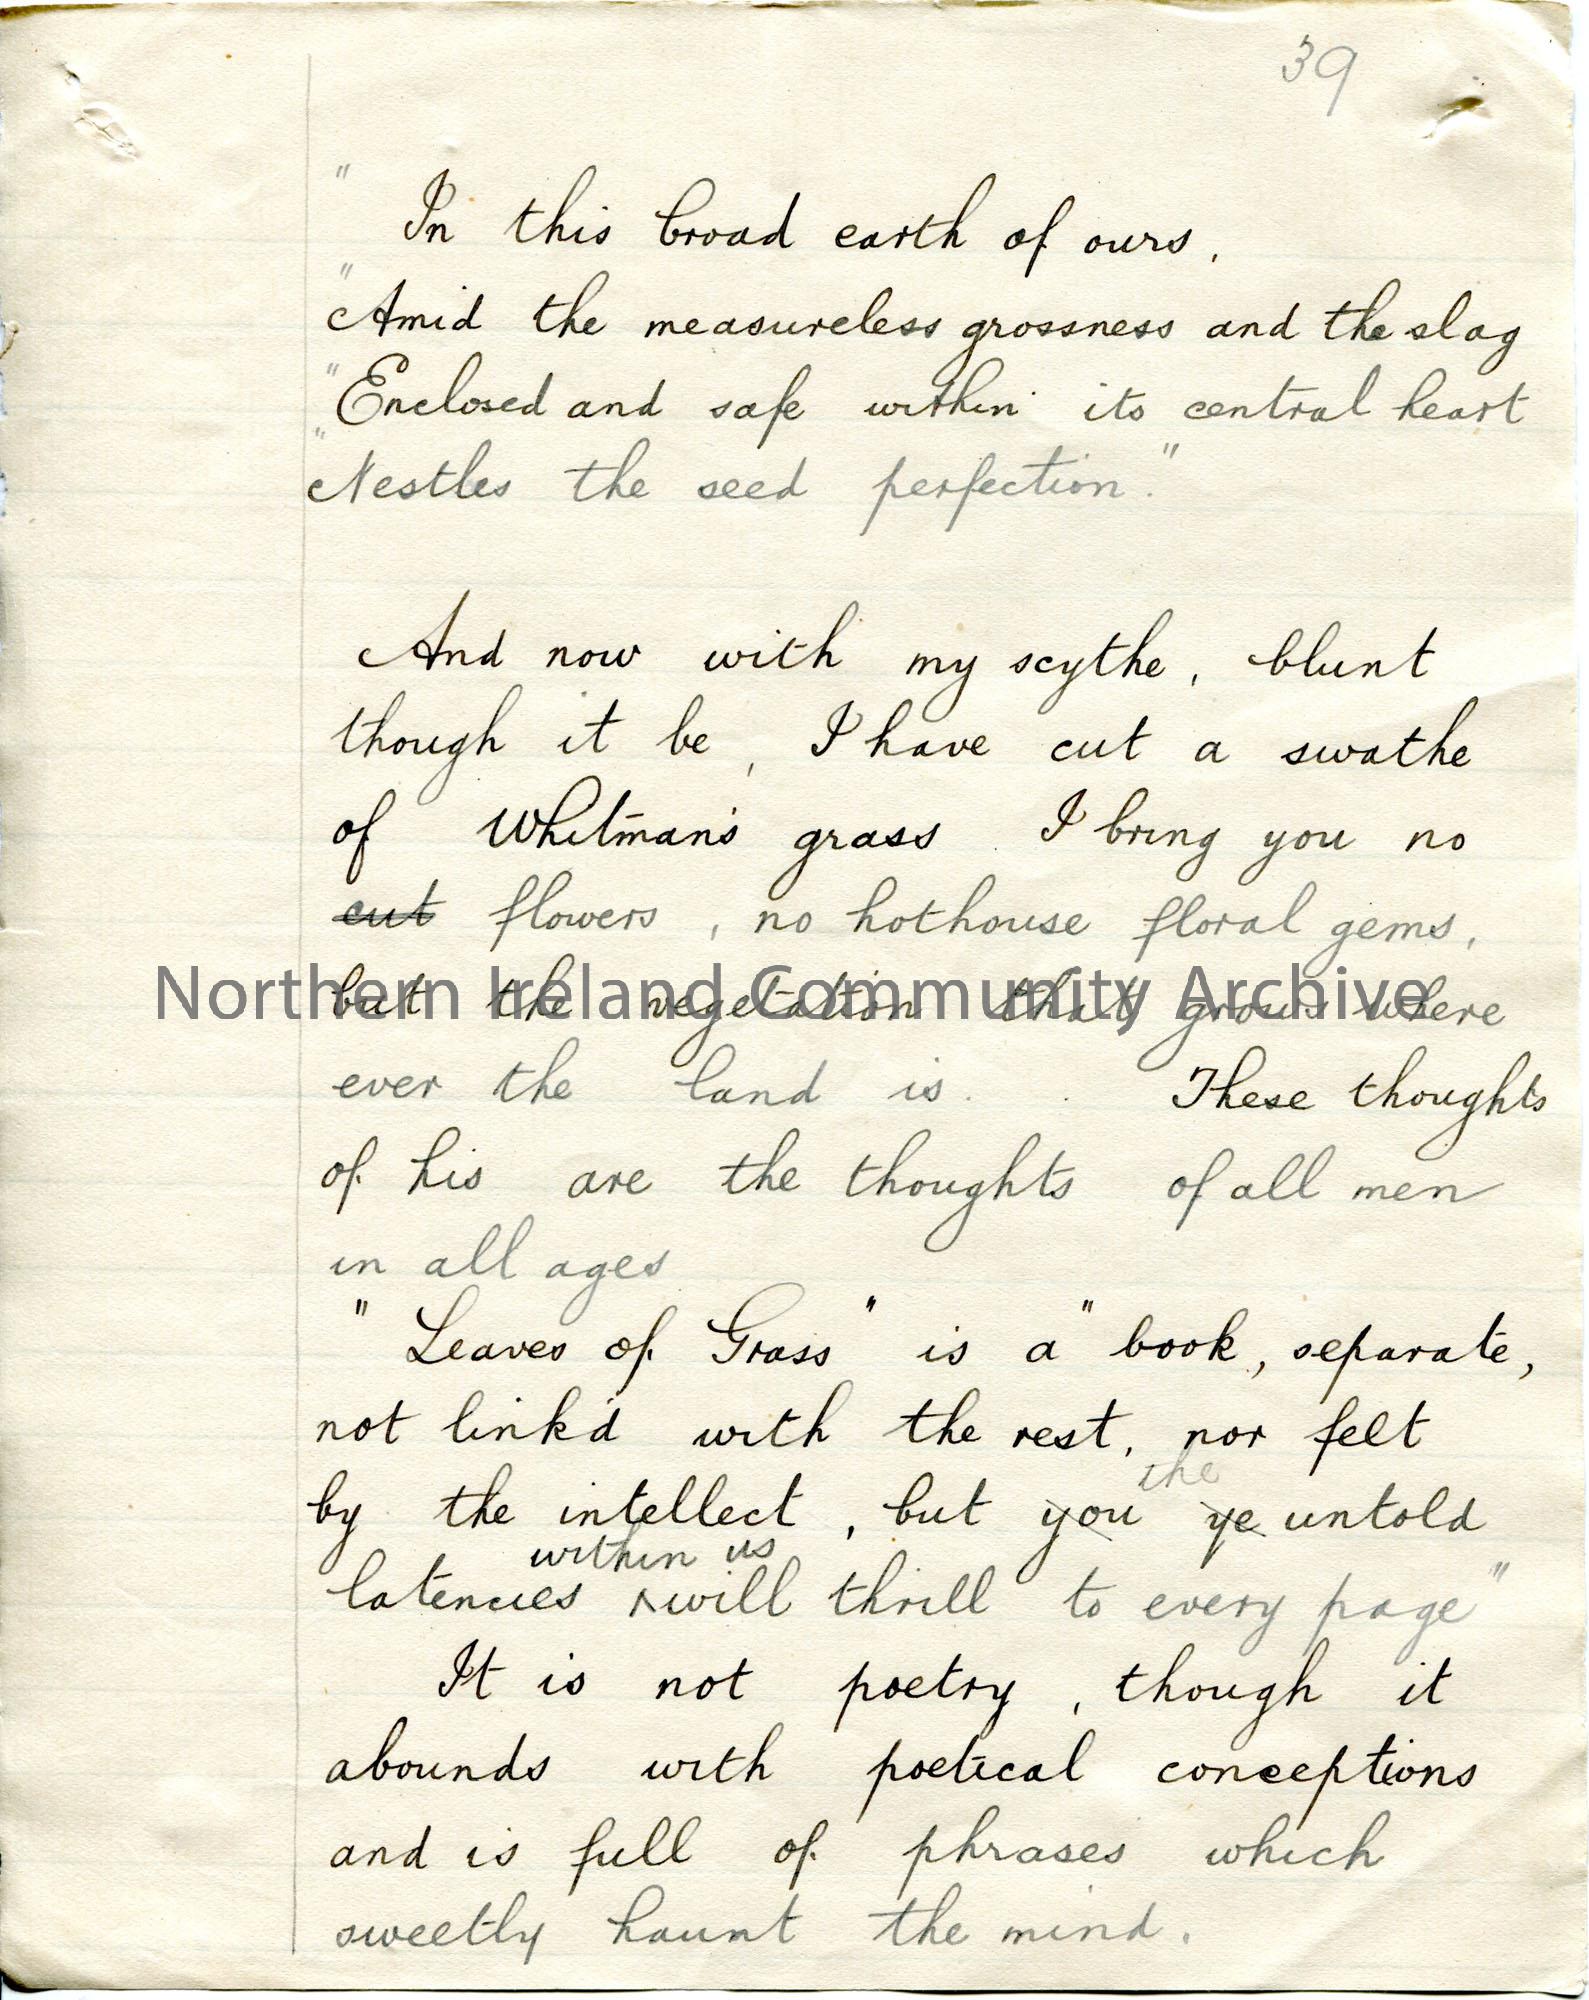 39
" In this broad earth of ours,
"Amid the measureless grossness and the slag
"Enclosed and safe within its central heart
"Nestles the seed perfection."
And now with my scythe, blunt
though it be, I have cut a swathe
of Whitman's grass. I bring you no
cut flowers, no hothouse floral gems,
but the vegetation that grows where
Northern Ireland Community Archive
ever the land is. These thoughts
of his are the thoughts of all men
in all ages
"Leaves of Grass" is a "book, separate,
not link'd with the rest, nor felt
by the intellect, but you the ye untold
latencies within us will thrill to every page"
It is not poetry, though it
abounds with poetical conceptions
and is full of phrases which
sweetly haunt the mind.